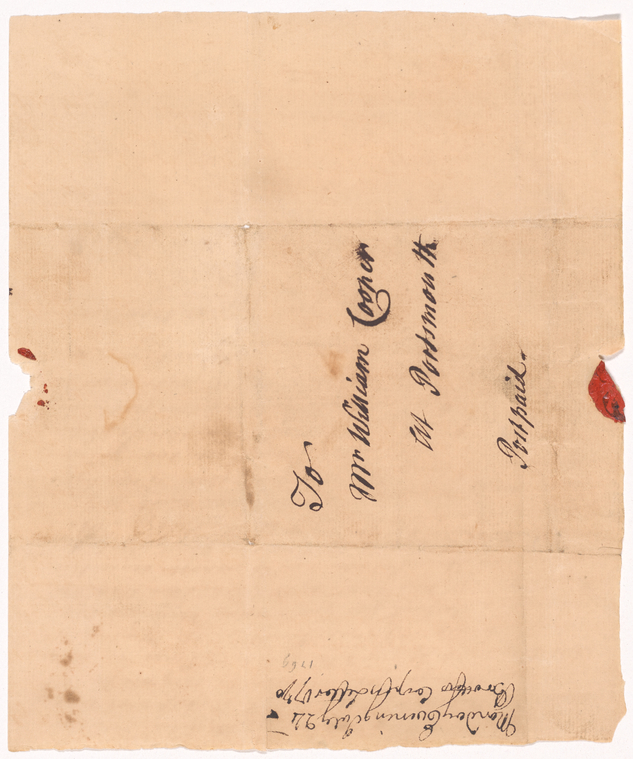 To
Mr William Cooper
At Portsmouth
Postpaid.
Monday Evening July 22
Letter 1770
1769